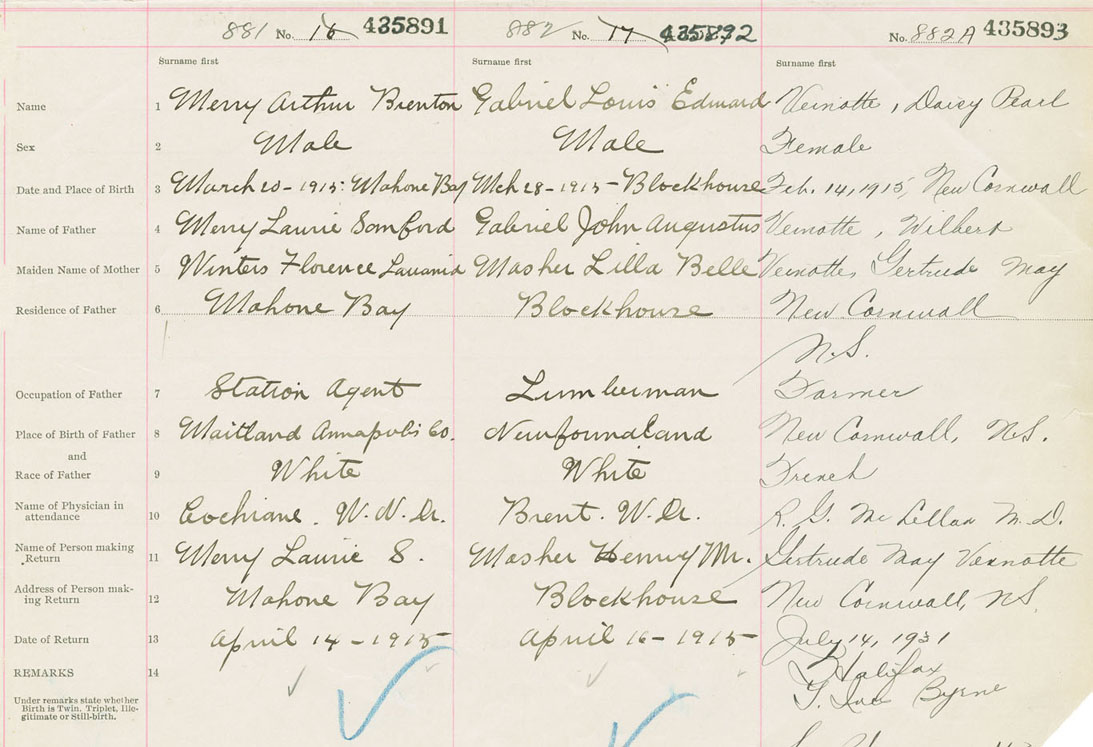 881 No. 16 435891 882 No. 17 435892 No. 882A 435893
Surname first Surname first Surname first
Name 1 Merry Arthur Brenton Gabriel Louis Edward Veinotte, Daisy Pearl
Sex 2 Male Male Female
Date and Place of Birth 3 March 20-1915. Mahone Bay Mch 28-1915-Blockhouse Feb. 14, 1915, New Cornwall
Name of Father 4 Merry Laurie Samford Gabriel John Augustus Veinotte, Wilbert
Maiden Name of Mother 5 Winters Florence Lavania Masher Lilla Belle Veinotte, Gertrude May
Residence of Father 6 Mahone Bay Blockhouse New Cornwall
N.S.
Occupation of Father 7 Station Agent Lumberman Farmer
Place of Birth of Father 8 Maitland Annapolis Co. Newfoundland New Cornwall, N.S.
and
Race of Father 9 White White French
Name of Physician in
attendance 10 Cochrane. W.N. Dr. Brent. W. Dr. R. G. McLellan M.D.
Name of Person making
Return 11 Merry Laurie S. Masher Henry Mr. Gertrude May Veinotte
Address of Person mak-
ing Return 12 Mahone Bay Blockhouse New Cornwall, N.S.
Date of Return 13 April 14-1915 April 16-1915 July 14, 1931
REMARKS 14 Halifax
Under remarks state whether
Birth is Twin. Triplet, Ille-
gitimate or Still-birth.
Byrne